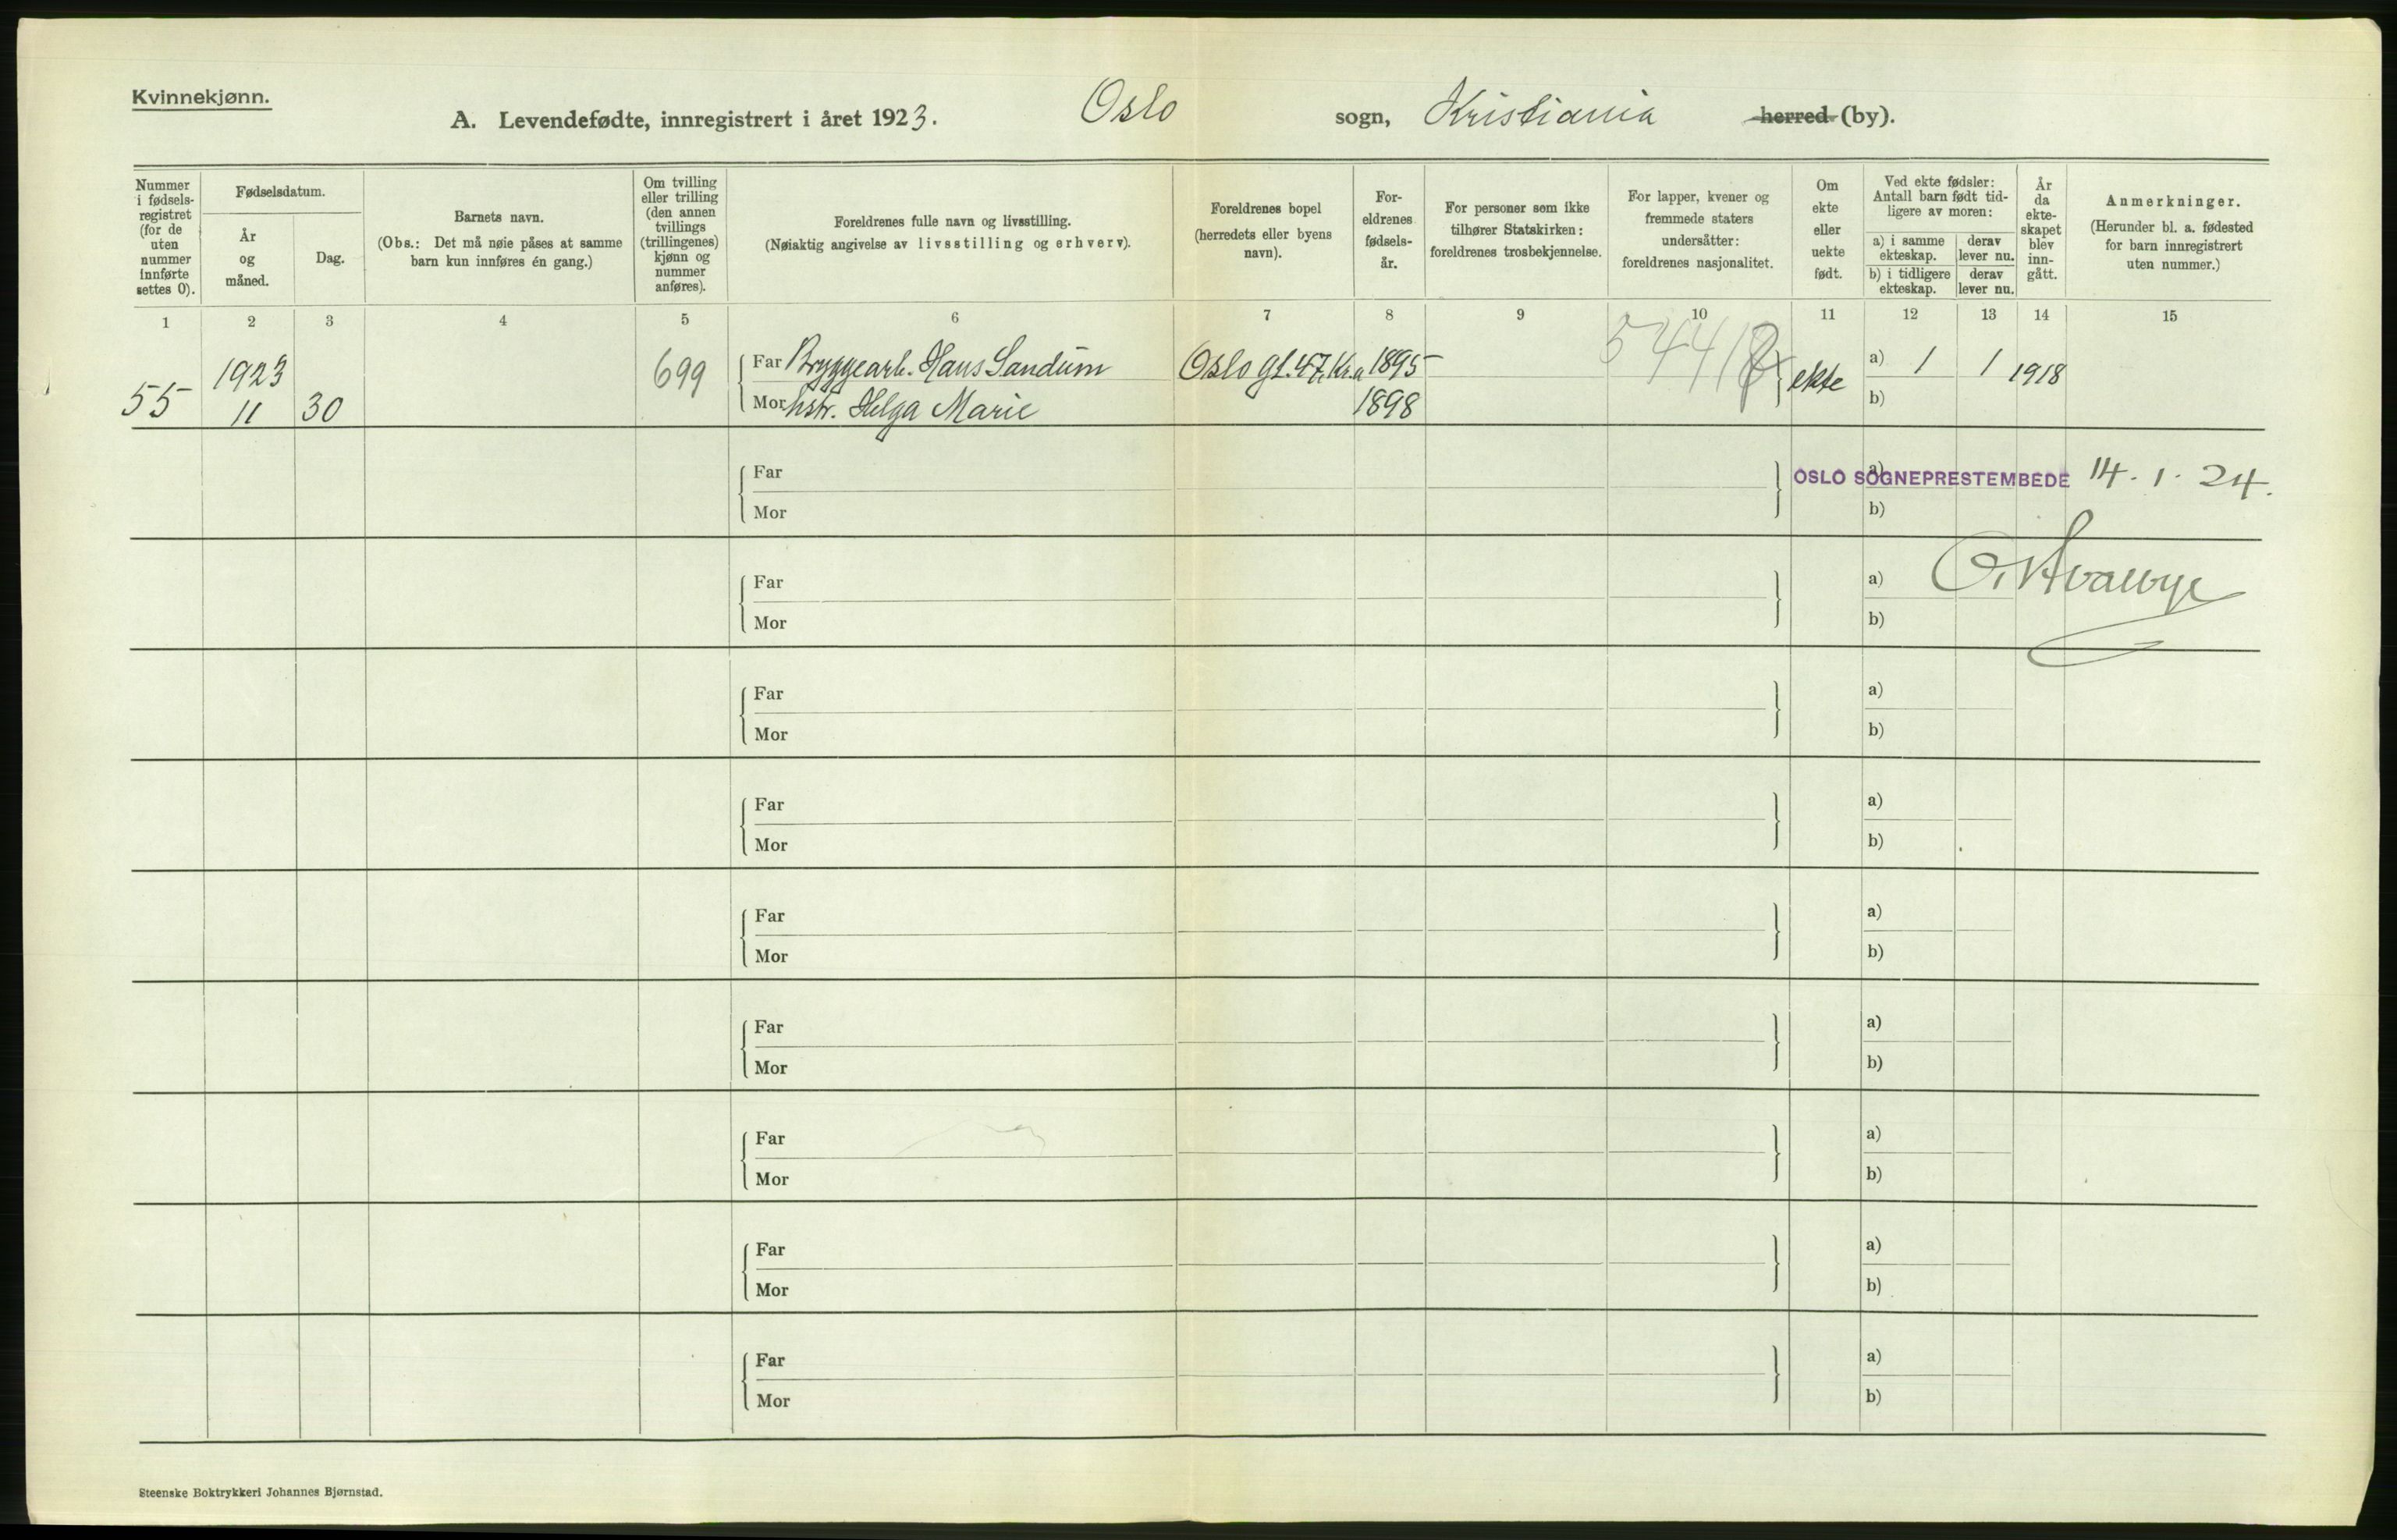 Kvinnekjønn.
A. Levendefødte, innregistrert i året 1923. Oslo sogn, Kristiania herred (by).
Nummer i fødselsregistret (for de uten nummer innførte settes 0).
Fødselsdatum.
År og måned.
Dag.
Barnets navn.
(Obs.: Det må nøie påses at samme barn kun innføres én gang.)
Om tvilling eller trilling (den annen tvillings (trillingenes) kjønn og nummer anføres).
Foreldrenes fulle navn og livsstilling.
(Nøiaktig angivelse av livsstilling og erhverv).
Foreldrenes bopel (herredets eller byens navn).
Foreldrenes fødselsår.
For personer som ikke tilhører Statskirken: foreldrenes trosbekjennelse.
For lapper, kvener og fremmede staters undersåtter: foreldrenes nasjonalitet.
Om ekte eller uekte født.
Ved ekte fødsler: Antall barn født tidligere av moren:
a) i samme ekteskap. derav lever nu.
b) i tidligere ekteskap. derav lever nu.
År da ekteskapet blev inngått.
Anmerkninger.
(Herunder bl. a. fødested for barn innregistrert uten nummer.)
1 2 3 4 5 6 7 8 9 10 11 12 13 14 15
55 1923 11 30 699 Far Bryggearb. Hans Sandum Oslo gt. 47, Kr.a 1895 ekte a) 1 1 1918
Mor hstr. Helga Marie 1898 b)
Far a)
OSLO SOGNEPRESTEMBEDE 14.1.24.
Mor b)
Far a)
Mor b)
Far a)
Mor b)
Far a)
Mor b)
Far a)
Mor b)
Far a)
Mor b)
Far a)
Mor b)
Far a)
Mor b)
Far a)
Mor b)
Steenske Boktrykkeri Johannes Bjørnstad.